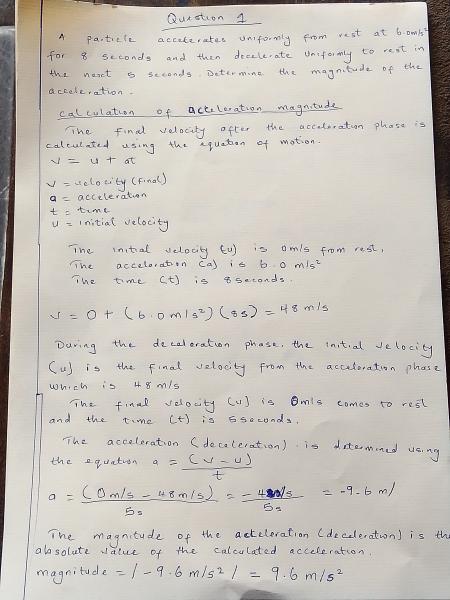 Question 1
A particle accelerates uniformly from rest at 6.0m/s²
for 8 seconds and then decelerate Uniformly to rest in
the next 5 seconds. Determine the magnitude of the
acceleration.
calculation of acceleration magnitude
The final velocity after the acceleration phase is
calculated using the equation of motion.
V = u + at
V = velocity (final)
a = acceleration
t = time
U = initial velocity
The initial velocity (u) is 0m/s from rest,
The acceleration (a) is 6.0 m/s²
The time (t) is 8 seconds.
V = 0 + (6.0m/s²)(8s) = 48 m/s
During the deceleration phase, the initial velocity
(u) is the final velocity from the acceleration phase
which is 48 m/s
The final velocity (v) is 0m/s comes to rest
and the time (t) is 5 seconds.
The acceleration (deceleration) is determined using
the equation a = (v - u)
t
a = (0m/s - 48m/s) = -4 /s = -9.6 m/
5s 5s
The magnitude of the acceleration (deceleration) is the
absolute value of the calculated acceleration.
magnitude = / -9.6 m/s² / = 9.6 m/s²